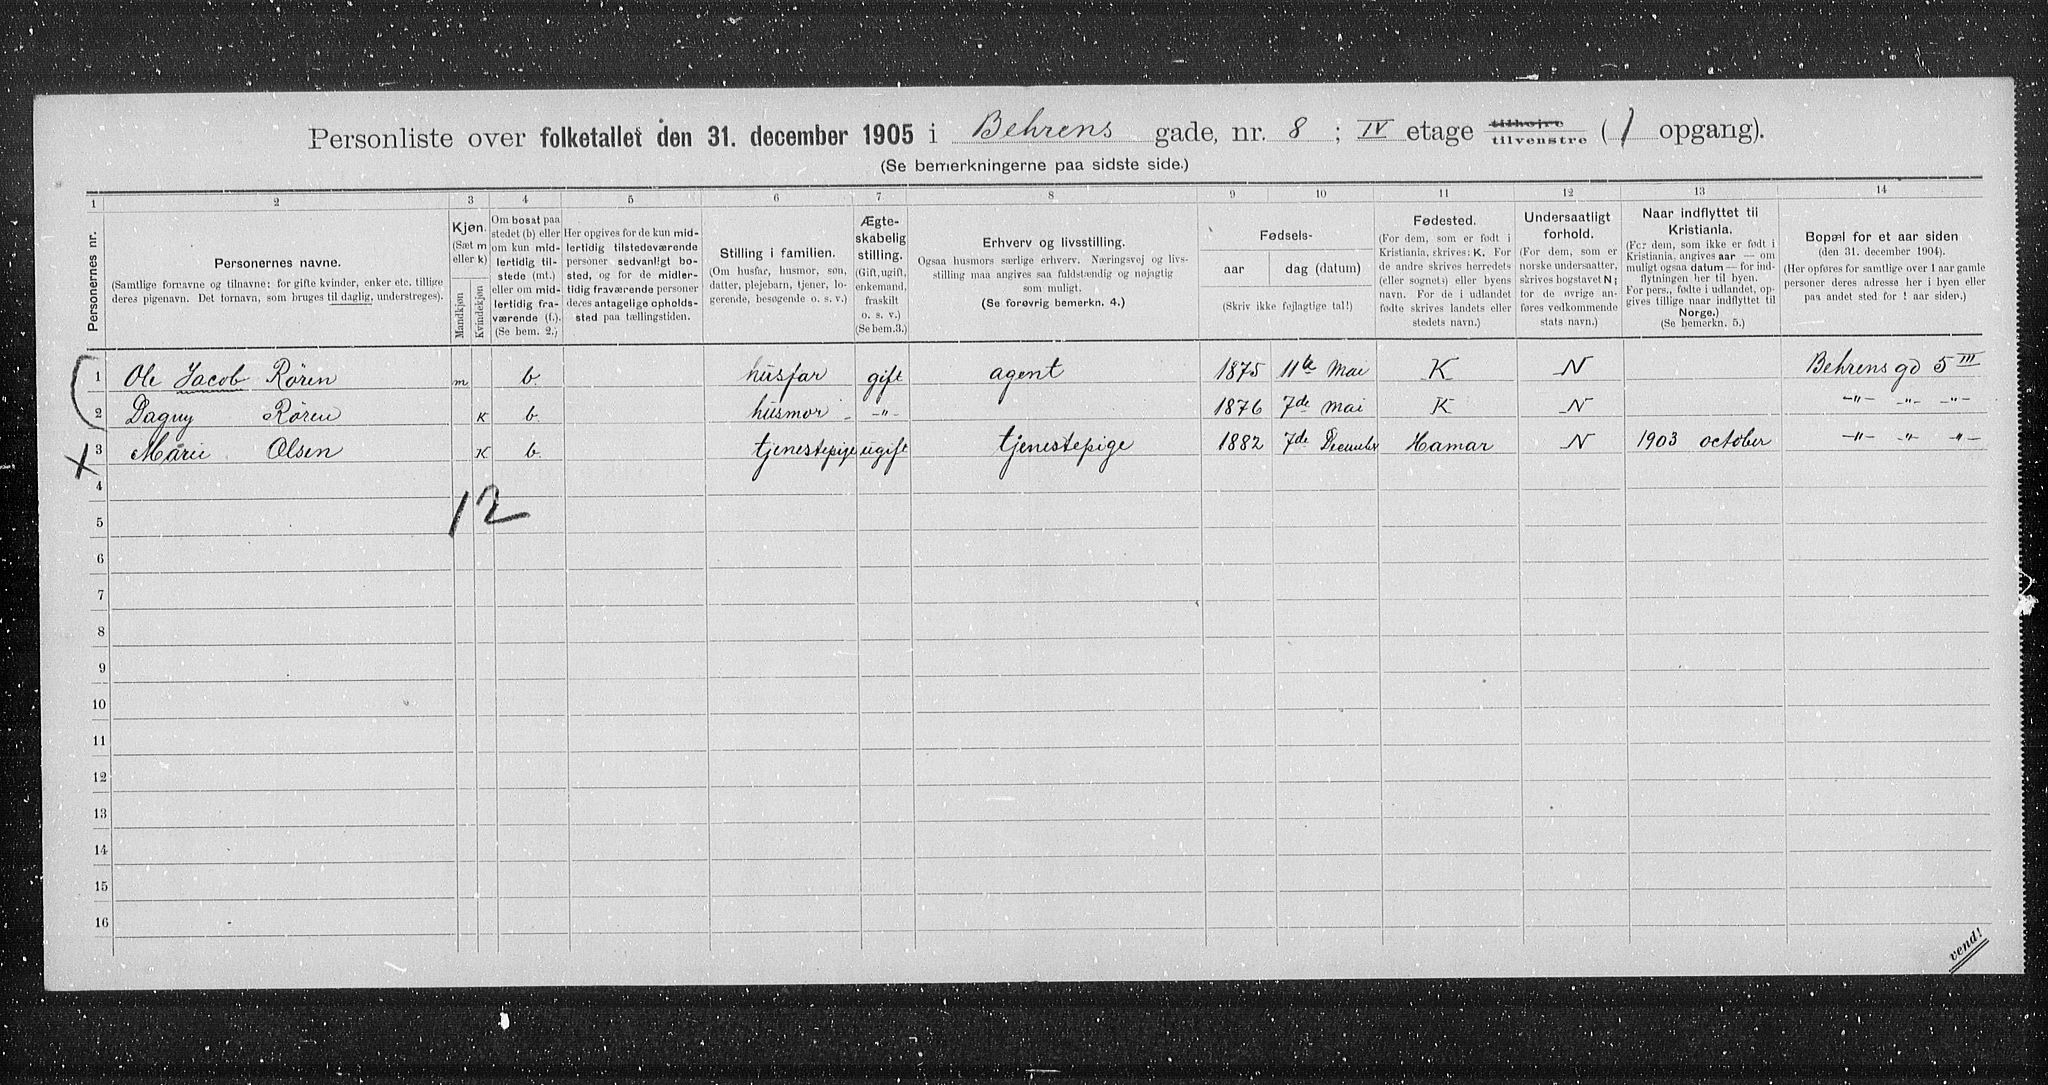 Personliste over folketallet den 31. december 1905 i Behrens gade, nr. 8 ; IV etage tilhøjre tilvenstre ( 1 opgang).
(Se bemerkningerne paa sidste side.)
1 2 3 4 5 6 7 8 9 10 11 12 13 14
Personernes nr.
Personernes navne.
(Samtlige fornavne og tilnavne; for gifte kvinder, enker etc. tillige
deres pigenavn. Det fornavn, som bruges til daglig, understreges).
Kjøn.
(Sæt m
eller k)
Mandkjøn
Kvindekjøn
Om bosat paa
stedet (b) eller
om kun mid-
lertidig til-
stede (mt.)
eller om mid-
lertidig fra-
værende (f.).
(Se bem. 2.)
Her opgives for de kun mid-
lertidig tilstedeværende
personer sedvanligt bo-
sted, og for de midler-
tidig fraværende personer
deres antagelige opholds-
sted paa tællingstiden.
Stilling i familien.
(Om husfar, husmor, søn,
datter, plejebarn, tjener, lo-
gerende, besøgende o. s. v.)
Ægte-
skabelig
stilling.
(Gift, ugift,
enkemand,
fraskilt
o. s. v.)
(Se bem.3.)
Erhverv og livsstilling.
Ogsaa husmors særlige erhverv. Næringsvej og livs-
stilling maa angives saa fuldstændig og nøjagtig
som muligt.
(Se forøvrig bemerkn. 4.)
Fødsels-
aar dag (datum)
(Skriv ikke fejlagtige tal!)
Fødested.
(For dem, som er født i
Kristiania, skrives: K. For
de andre skrives herredets
(eller sognets) eller byens
navn. For de i udlandet
fødte skrives landets eller
stedets navn.)
Undersaatligt
forhold.
(For dem, som er
norske undersaatter,
skrives bogstavet N;
for de øvrige an-
føres vedkommende
stats navn.)
Naar indflyttet til
Kristiania.
(For dem, som ikke er født i
Kristiania, angives aar — om
muligt ogsaa datum — for ind-
flytningen her til byen.
For pers., fødte i udlandet, op-
gives tillige naar indflyttet til
Norge.)
(Se bemerkn. 5.)
Bopæl for et aar siden
(den 31. december 1904).
(Her opføres for samtlige over 1 aar gamle
personer deres adresse her i byen eller
paa andet sted for 1 aar siden.)
1 Ole Jacob Røren m b. husfar gift agent 1875 11te Mai K N Behrens gd 5 III
2 Dagny Røren K b. husmor -"- 1876 7de Mai K N -"- -"- -"-
3 Marie Olsen K b. tjenestepige ugift tjenestepige 1882 7de December Hamar N 1903 october -"- -"- -"-
4
12
5
6
7
8
9
10
11
12
13
14
15
16
vend!